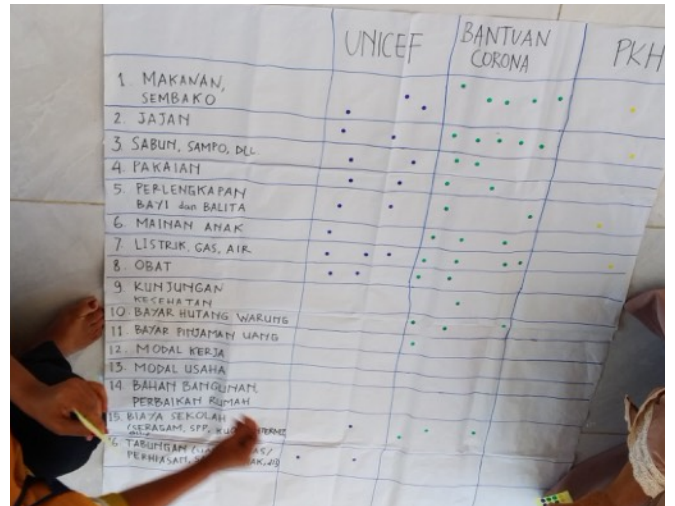 UNICEF
BANTUAN
CORONA
PKH
1. MAKANAN,
SEMBAKO
2. JAJAN
3. SABUN, SAMPO, DLL.
4. PAKAIAN
5. PERLENGKAPAN
BAYI dan BALITA
6. MAINAN ANAK
7. LISTRIK, GAS, AIR
8. OBAT
9. KUNJUNGAN
KESEHATAN
10. BAYAR HUTANG WARUNG
11. BAYAR PINJAMAN UANG
12. MODAL KERJA
13. MODAL USAHA
14. BAHAN BANGUNAN,
PERBAIKAN RUMAH
15. BIAYA SEKOLAH
(SERAGAM, SPP,
TABUNGAN
PERHIASAN,